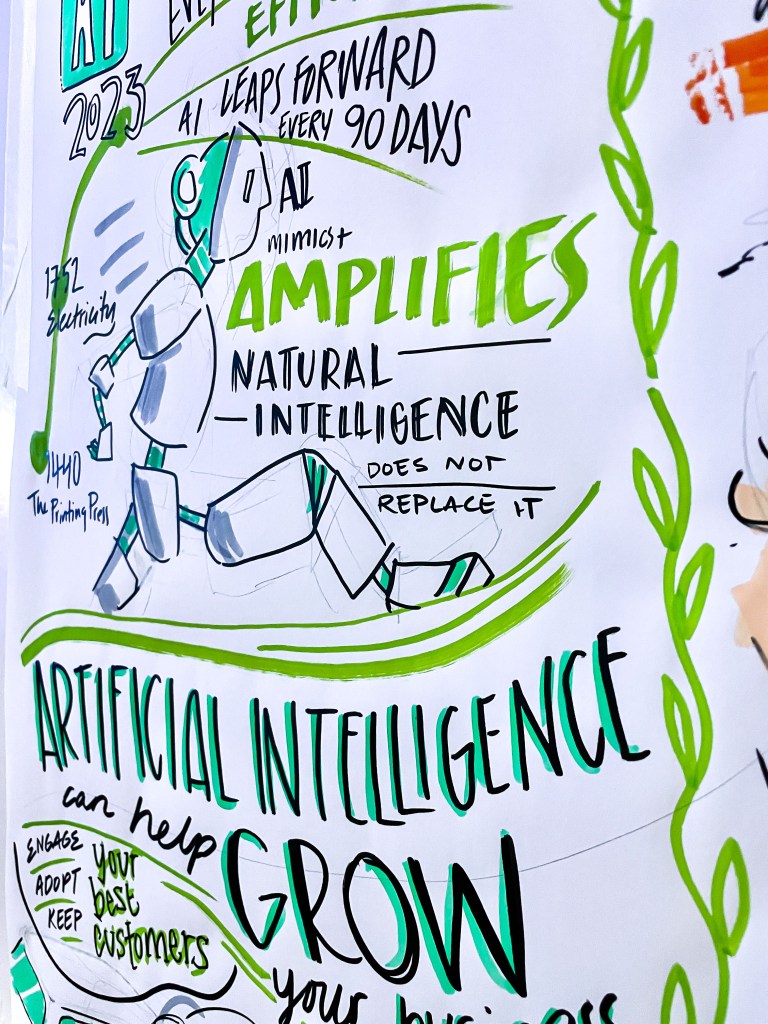 AI
2023
AI LEAPS FORWARD
EVERY 90 DAYS
AI
mimics+
AMPLIFIES
1752
Electricity
NATURAL
INTELLIGENCE
DOES NOT
REPLACE IT
1440
The Printing Press
ARTIFICIAL INTELLIGENCE
can help
GROW
your business
ENGAGE
ADOPT
KEEP
your
best
customers